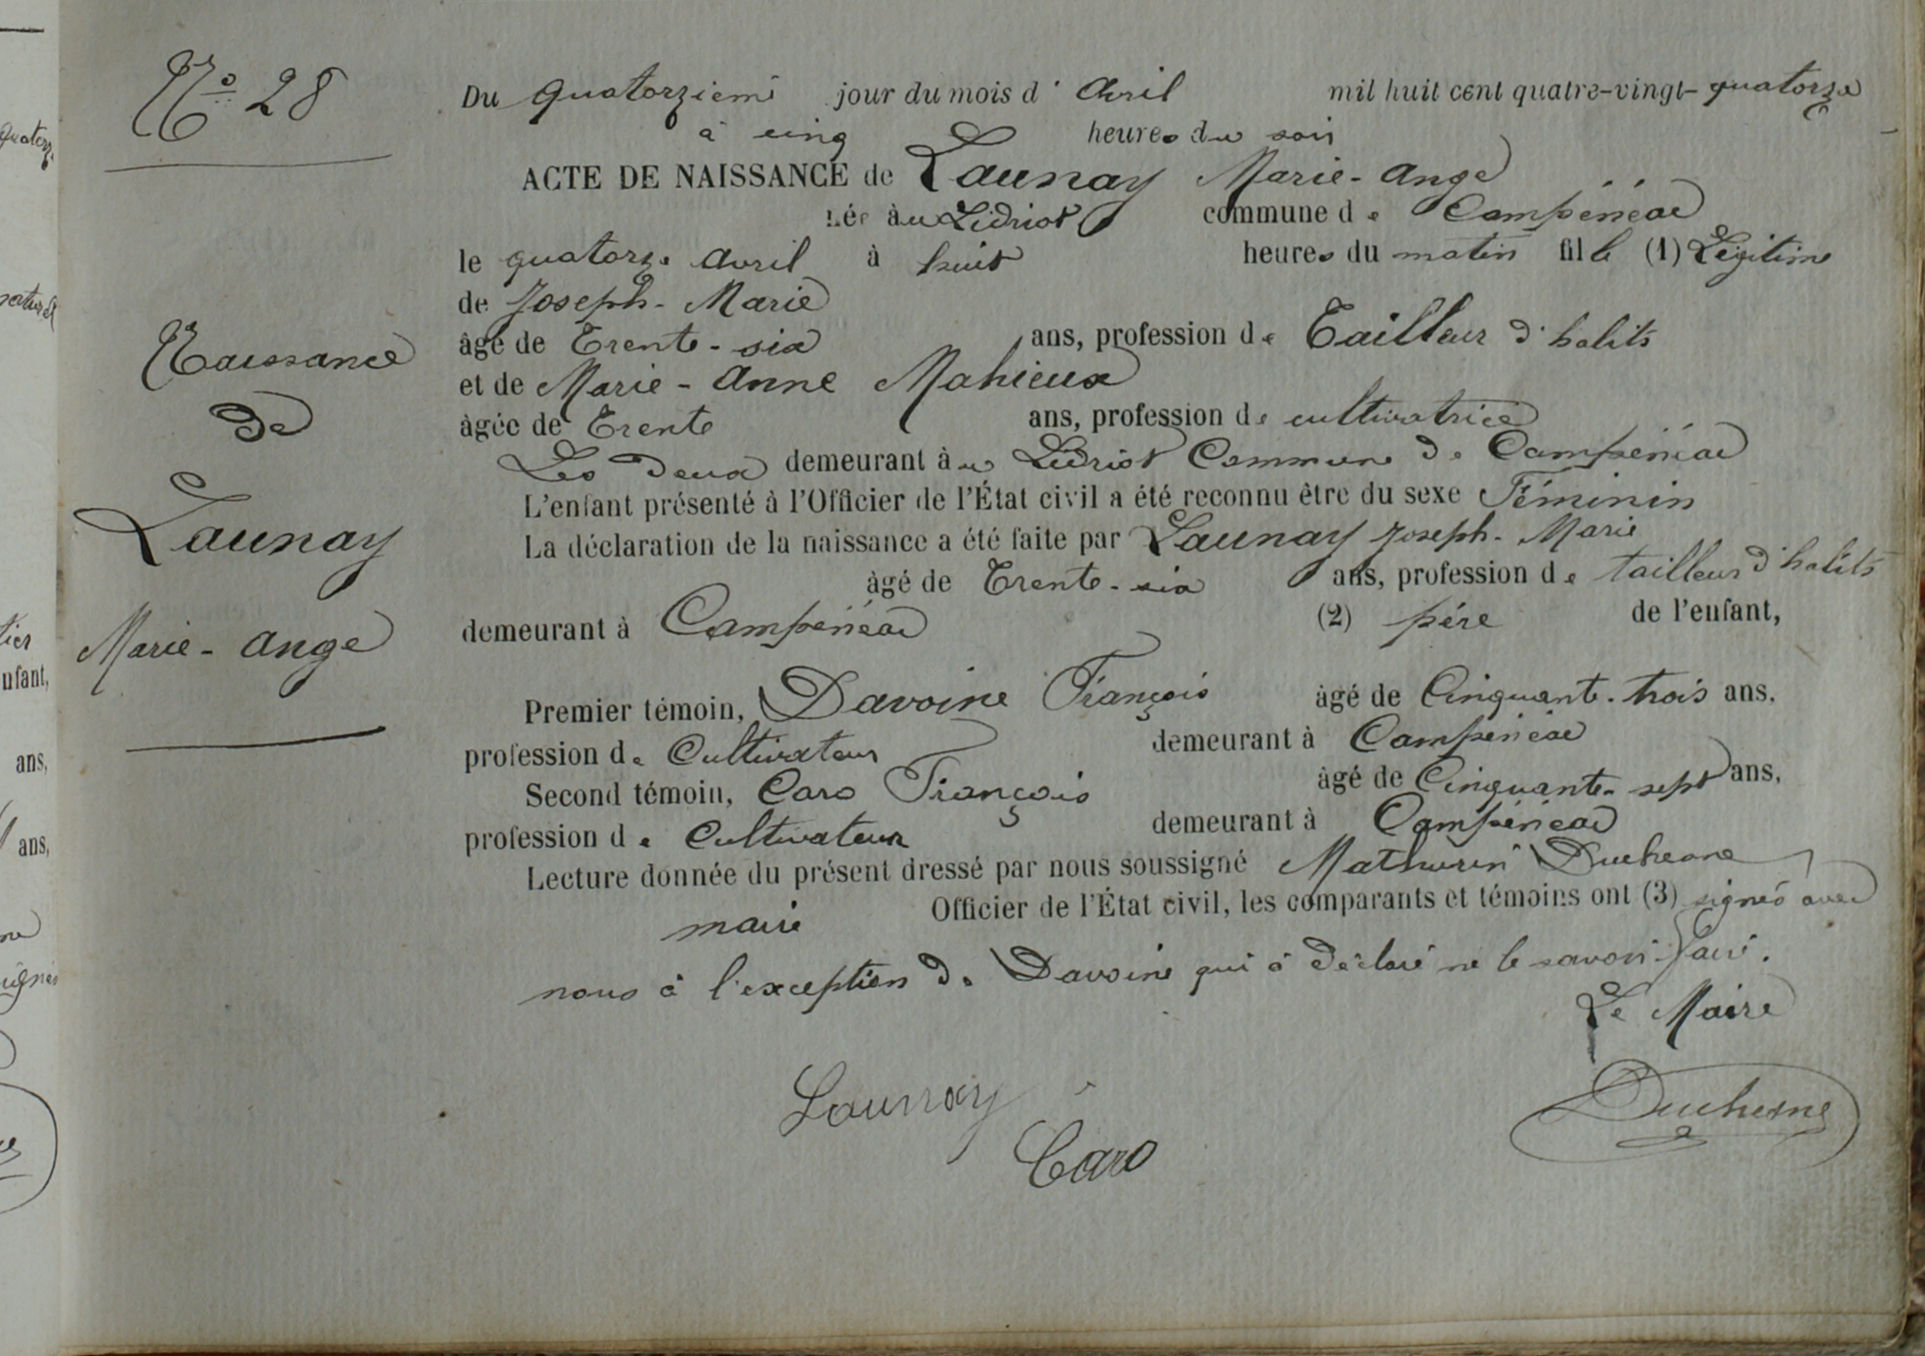 N° 28
Du quatorzième jour du mois d'avril mil huit cent quatre-vingt-quatorze
à cinq heures du soir
ACTE DE NAISSANCE de Launay Marie-Ange
née au Lidriot commune de Campénéac
le quatorze avril à huit heures du matin fille (1) Légitime
de Joseph-Marie
âgé de Trente-six ans, profession de Tailleur d'habits
et de Marie-Anne Mahieux
âgée de Trente ans, profession de cultivatrice
Les deux demeurant au Lidriot Commune de Campénéac
L'enfant présenté à l'Officier de l'État civil a été reconnu être du sexe Féminin
La déclaration de la naissance a été faite par Launay Joseph-Marie
âgé de Trente-six ans, profession de tailleur d'habits
demeurant à Campénéac (2) père de l'enfant,
Premier témoin, Davoine François âgé de Cinquante-trois ans,
profession de Cultivateur demeurant à Campénéac
Second témoin, Caro François âgé de Cinquante-sept ans,
profession de Cultivateur demeurant à Campénéac
Lecture donnée du présent dressé par nous soussigné Mathurin Duchesne
maire Officier de l'État civil, les comparants et témoins ont (3) signés avec
nous à l'exception de Davoine qui à déclaré ne le savoir faire.
Le Maire
Launay
Caro
Duchesne
Naissance
de
Launay
Marie-Ange
quatorze
naturel
nfant,
ans,
ans,